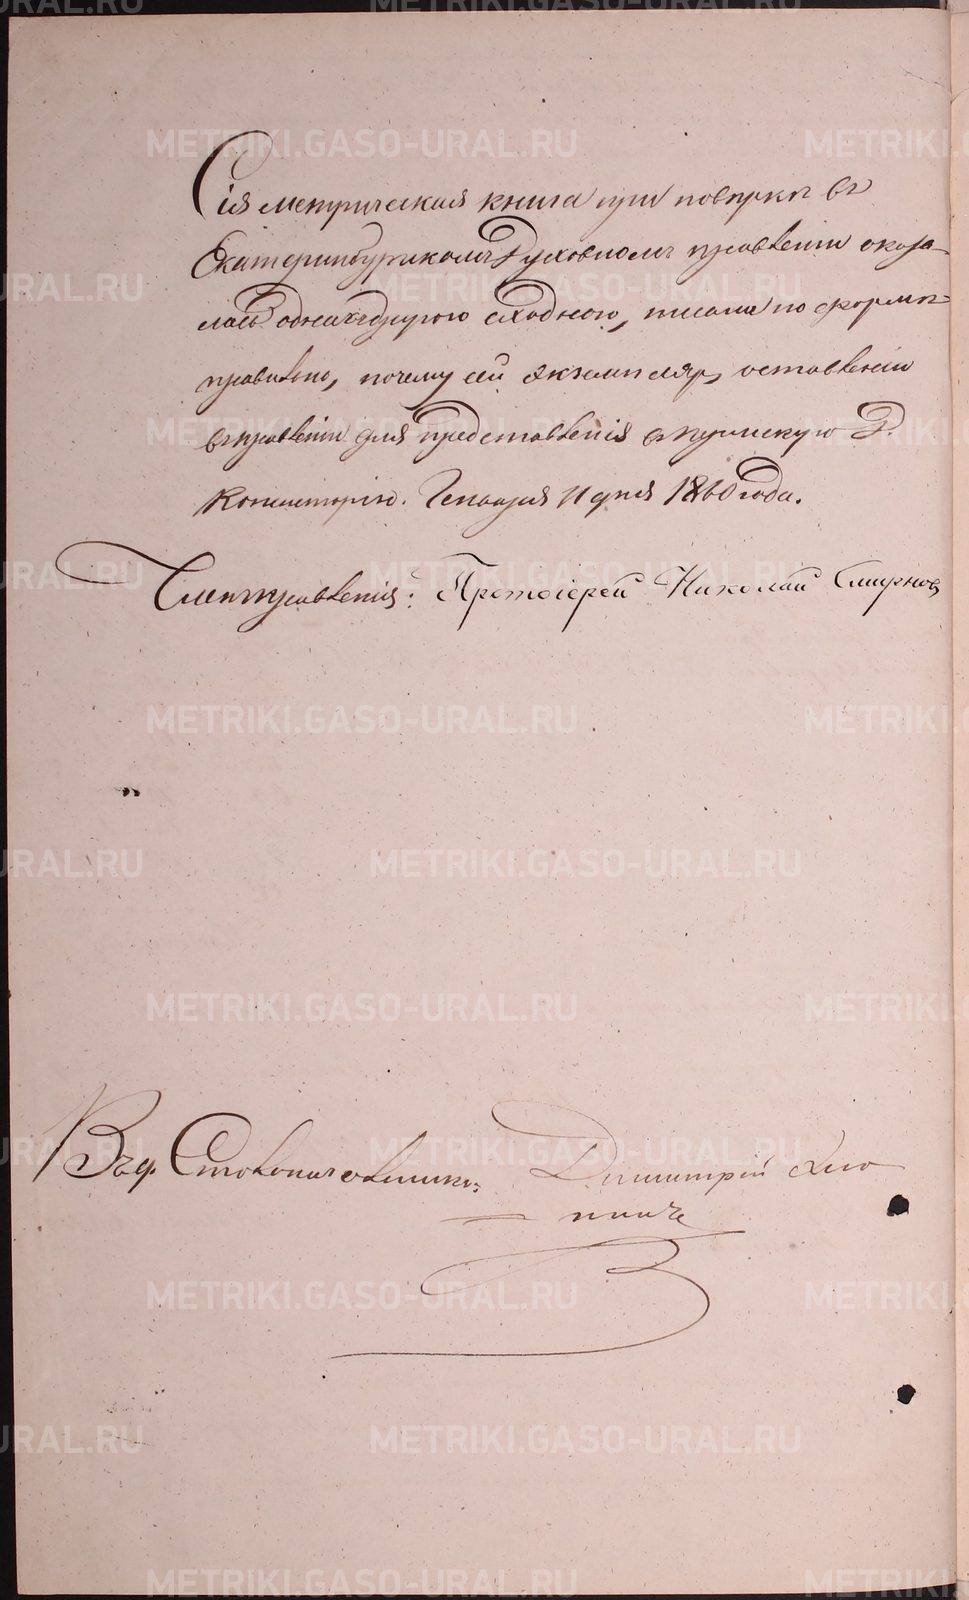 Сія метрическая книга при повѣркѣ въ
Екатеринбургскомъ Духовномъ правленіи оказа-
лась одна съ другою сходною, писана по формѣ
правильно, почему сей экземпляръ оставленъ
въ правленіи для представленія въ Пермскую Д.
Консисторію. Генваря 11 дня 1860 года.
Членъ правленія: Протоіерей Николай Смирновъ
Въ д. Столоначальника: Димитрій
METRIKI.GASO-URAL.RU